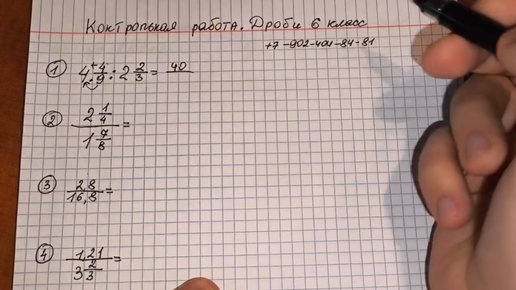 Контрольная работа. Дроби 6 класс
+7-902-401-84-81
① 4 4/9 : 2 2/3 = 40
② 2 1/4 / 1 7/8 =
③ 2,8 / 16,8 =
④ 1,21 / 3 2/3 =